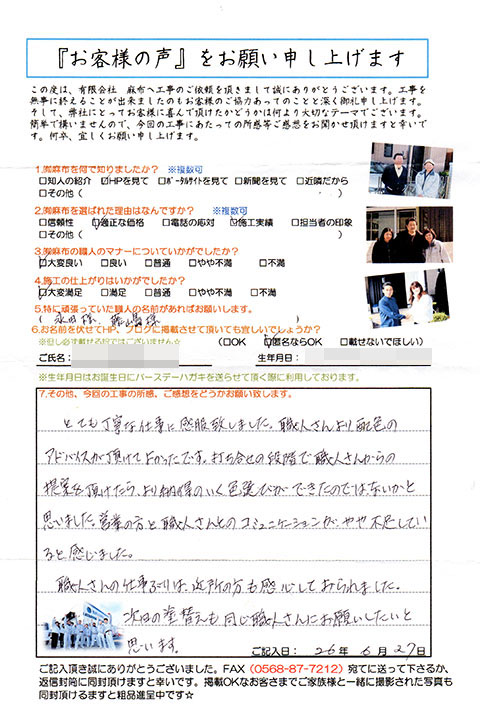 『お客様の声』をお願い申し上げます
この度は、有限会社 麻布へ工事のご依頼を頂きまして誠にありがとうございます。工事を
無事に終えることが出来ましたのもお客様のご協力あってのことと深く御礼申し上げます。
そして、弊社にとってお客様に喜んで頂けたかどうかは何より大切なテーマでございます。
簡単で構いませんので、今回の工事にあたっての所感等ご感想をお聞かせ頂けますと幸いで
す。何卒、宜しくお願い申し上げます。
1.㈲麻布を何で知りましたか? ※複数可
□知人の紹介 ☑HPを見て □ポータルサイトを見て □新聞を見て □近隣だから
□その他( )
2.㈲麻布を選ばれた理由はなんですか? ※複数可
□信頼性 ☑適正な価格 □電話の応対 ☑施工実績 □担当者の印象
□その他( )
3.㈲麻布の職人のマナーについていかがでしたか?
☑大変良い □良い □普通 □やや不満 □不満
4.施工の仕上がりはいかがでしたか?
☑大変満足 □満足 □普通 □やや不満 □不満
5.特に頑張っていた職人の名前があればお願いします。
( 永田様、 様 )
6.お名前を伏せてHP、ブログに掲載させて頂いても宜しいでしょうか?
※但し必ず載せる訳ではございません☆ (□OK ☑匿名ならOK □載せないでほしい)
ご氏名: 生年月日:
※生年月日はお誕生日にバースデーハガキを送らせて頂く際に利用しております。
7.その他、今回の工事の所感、ご感想をどうかお願い致します。
とても丁寧な仕事に感服致しました。職人さんより配色の
アドバイスが頂けてよかったです。打ち合せの段階で職人さんからの
提案を頂けたら、より納得のいく色選びができたのではないかと
思いました。営業の方と職人さんとのコミュニケーションが、やや不足してい
ると感じました。
職人さんの仕事ぶりは、近所の方も感心しておられました。
次回の塗替えも同じ職人さんにお願いしたいと
思います。
ご記入日: 26年 6月 27日
ご記入頂き誠にありがとうございました。FAX (0568-87-7212) 宛てに送って下さるか、
返信封筒に同封頂けますと幸いです。掲載OKなお客さまでご家族様と一緒に撮影された写真も
同封頂けるますと粗品進呈中です☆